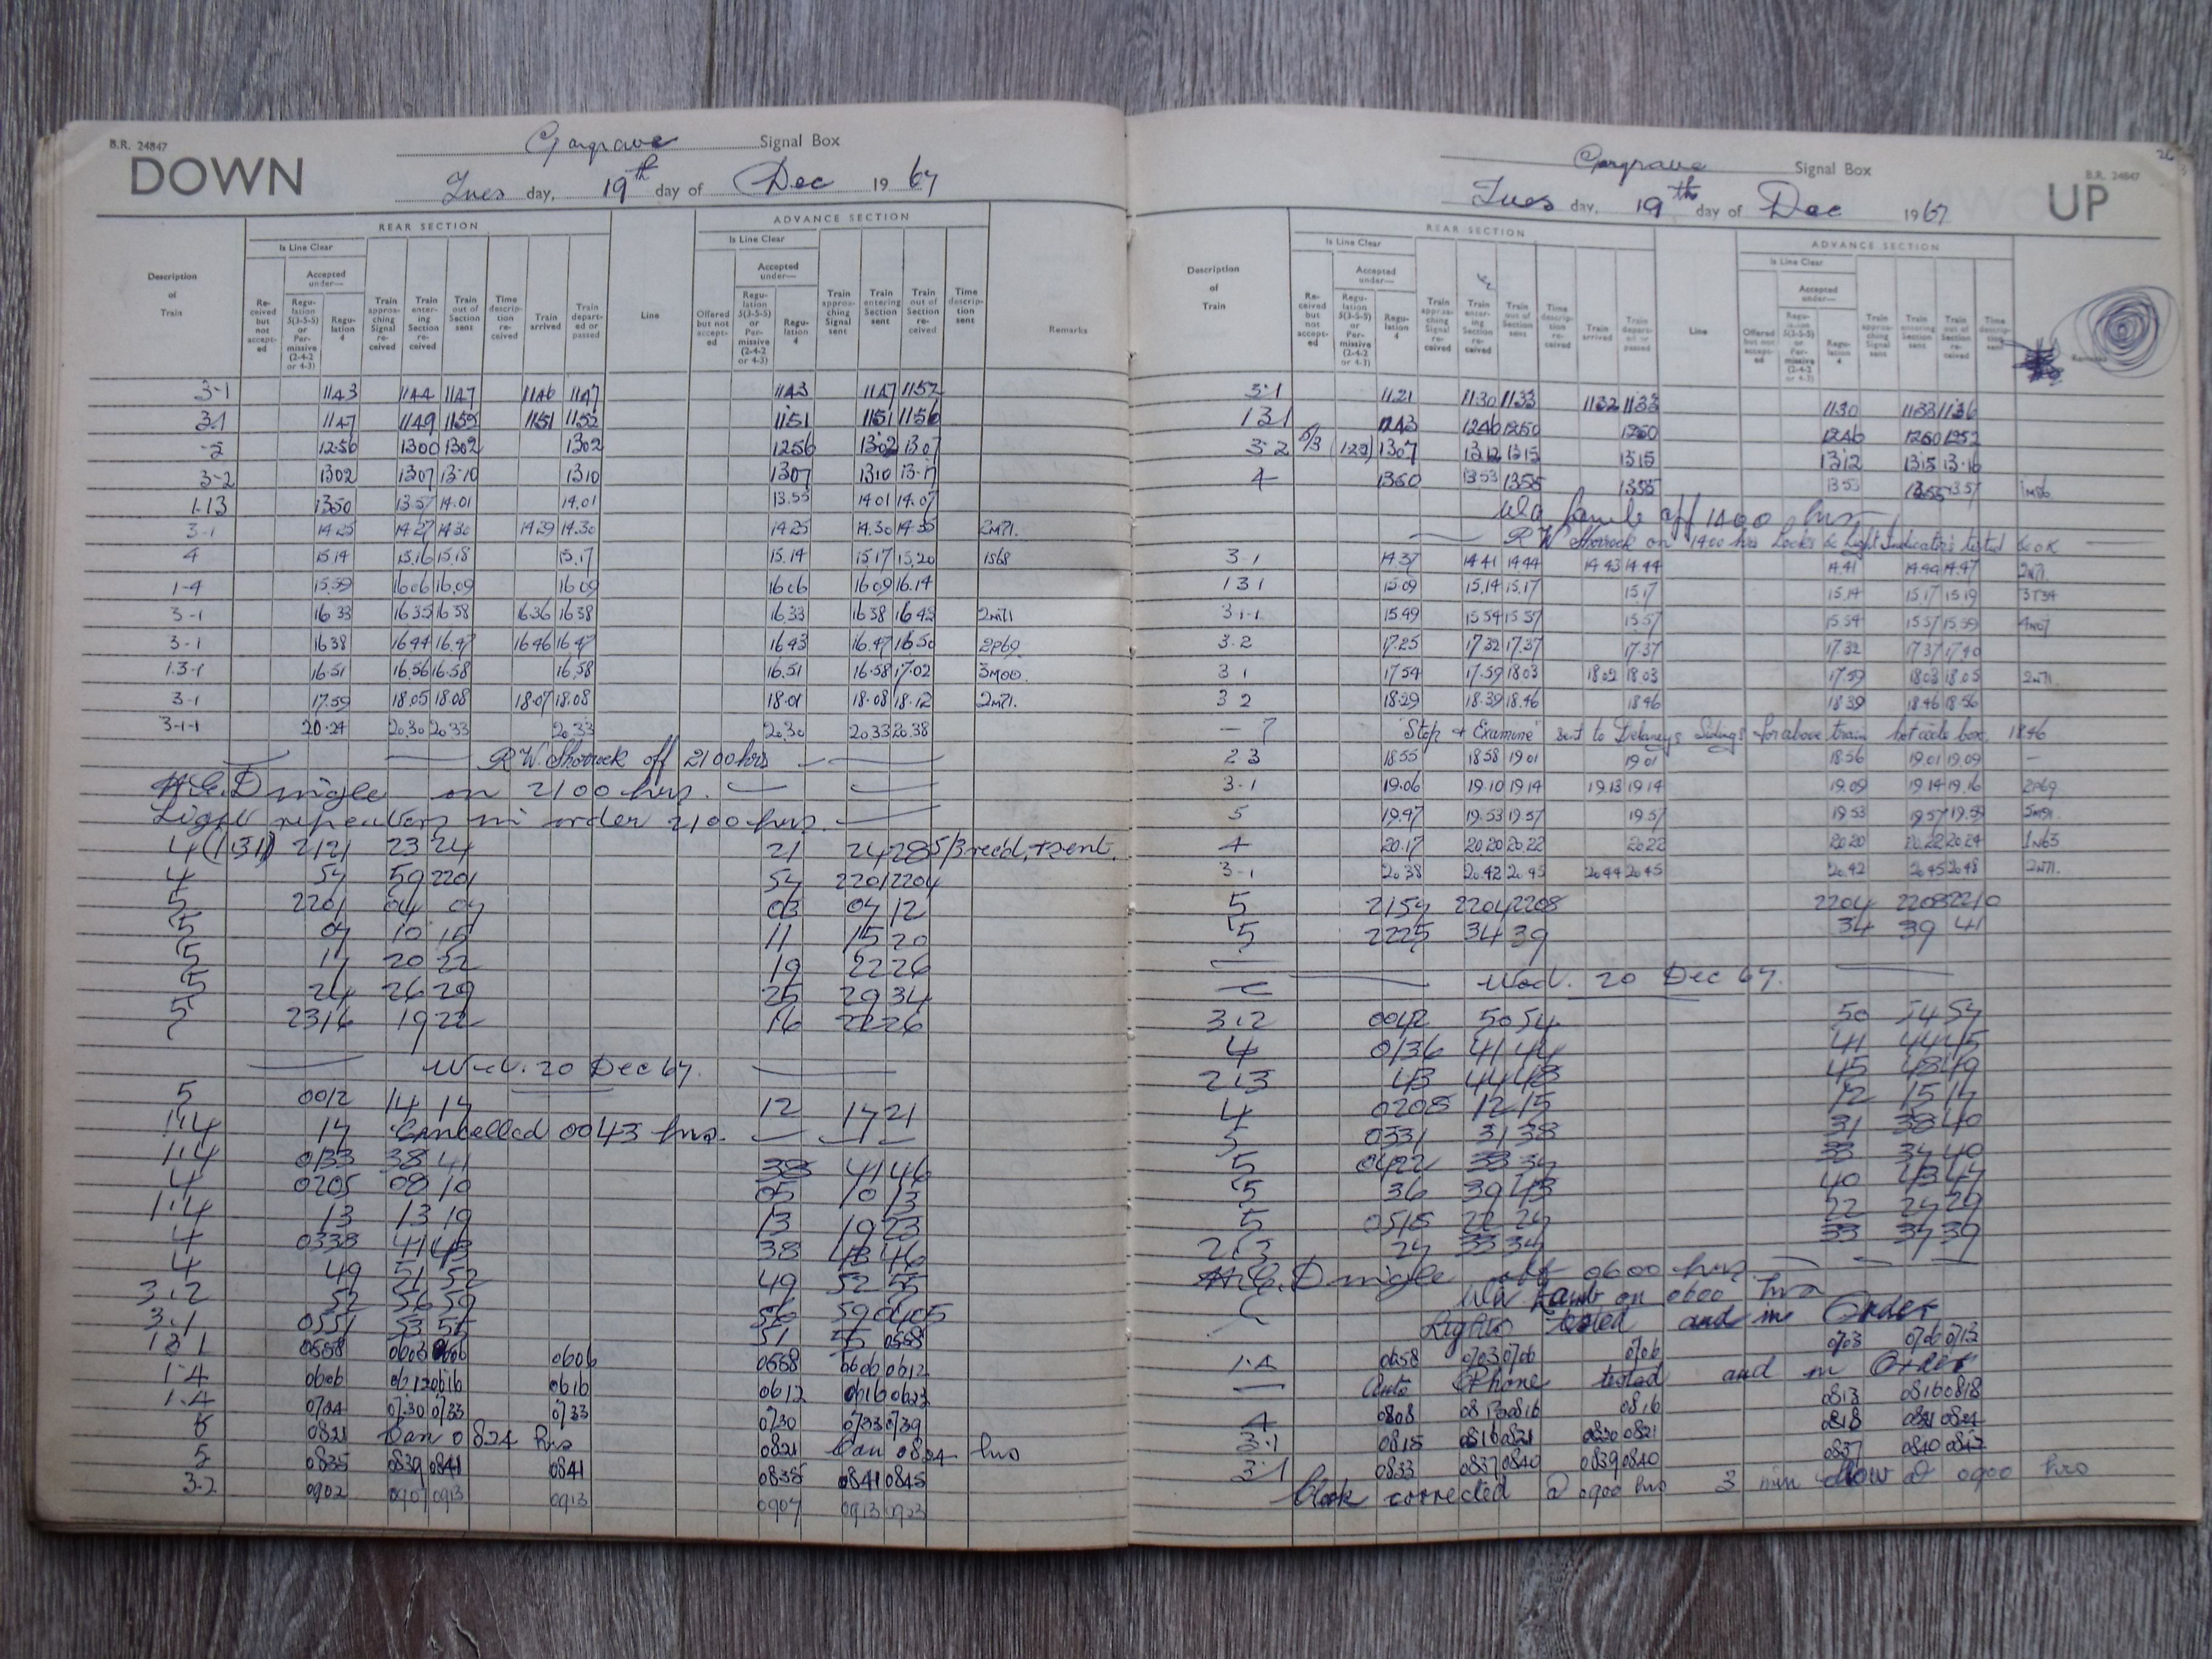 B.R. 24847
DOWN
Gargrave Signal Box
Tues day, 19th day of Dec 1967
REAR SECTION
ADVANCE SECTION
Is Line Clear
Is Line Clear
Description of Train
Received but not accepted
Accepted under—
Regulation 5(3-5-5) or Permissive (2-4-2 or 4-3)
Regulation 4
Train approaching Signal received
Train entering Section received
Train out of Section sent
Time description received
Train arrived
Train departed or passed
Line
Offered but not accepted
Accepted under—
Regulation 5(3-5-5) or Permissive (2-4-2 or 4-3)
Regulation 4
Train approaching Signal sent
Train entering Section sent
Train out of Section received
Time description sent
Remarks
3-1 1143 1144 1147 1146 1147 1143 1147 1152
3-1 1147 1149 1151 1151 1151 1156
1256 1300 1302 1302 1256 1302 1307
3-2 1302 1307 13·10 1310 1307 1310 13·17
1·13 1350 13·57 14·01 14.01 13.55 14 01 14.07
3-1 14 25 14 27 14 30 14 29 14.30 14 25 14.30 14 35 2M71.
4 15.14 15.16 15.18 15.17 15.14 15.17 15.20 1S68
1-4 15.59 16 06 16.09 16 09 16 06 16 09 16.14
3-1 16 33 16 35 16 38 16 36 16 38 16.33 16 38 16 42 2M71
3-1 16 38 16 44 16.47 16 46 16 47 16 43 16.47 16 50 2P69
1·3-1 16.51 16.56 16.58 16.58 16.51 16.58 17.02 3M00
3-1 17.59 18.05 18.08 18.07 18.08 18.01 18.08 18.12 2M71.
3-1-1 20·24 20.30 20 33 20.33 20.30 20.33 20.38
R W. Shorrock off 2100hrs
H.G. Dingle on 2100 hrs.
Light repeaters in order 2100 hrs.
4 (131) 2121 23 24 21 24 28 5/3 recd, + sent.
4 54 59 2201 54 2201 2204
5 2201 04 07 03 07 12
5 07 10 15 11 15 20
5 17 20 22 19 22 26
5 24 26 29 25 29 34
5 2316 19 22 16 22 26
Wed. 20 Dec 67.
5 0012 14 17 12 17 21
1·4 17 Cancelled 0043 hrs.
1·4 0133 38 41 38 41 46
4 0205 08 10 05 10 13
1·4 13 13 19 13 19 23
4 0338 41 43 38 43 46
4 49 51 52 49 52 55
3·2 52 56 59 56 59 0405
3·1 0551 53 55 51 55 0558
131 0558 0603 0606 0606 0558 0606 0612
1·4 0606 0612 0616 0616 0612 0616 0623
1·4 0724 0730 0733 0733 0730 0733 0739
5 0821 Can 0824 hrs 0821 Can 0824 hrs
5 0835 0839 0841 0841 0835 0841 0845
3-2 0902 0907 0913 0913 0907 0913 0923
26
B.R. 24847
UP
Gargrave Signal Box
Tues day, 19th day of Dec 1967
REAR SECTION
ADVANCE SECTION
Is Line Clear
Is Line Clear
Description of Train
Received but not accepted
Accepted under—
Regulation 5(3-5-5) or Permissive (2-4-2 or 4-3)
Regulation 4
Train approaching Signal received
Train entering Section received
Train out of Section sent
Time description received
Train arrived
Train departed or passed
Line
Offered but not accepted
Accepted under—
Regulation 5(3-5-5) or Permissive (2-4-2 or 4-3)
Regulation 4
Train approaching Signal sent
Train entering Section sent
Train out of Section received
Time description sent
Remarks
3·1 1121 1130 1133 1132 1133 1130 1133 1136
131 1243 1246 1250 1250 1246 1250 1252
3-2 5/3 1307 1312 1315 1315 1312 1315 13·16
4 1350 1353 1355 1355 1353 1355 1357
Wa Lamb off 1400 hrs
R W Shorrock on 1400 hrs Locks & Light Indicators tested & O K
3-1 14.37 14 41 14 44 14 43 14 44 14.41 14.44 14.47 2N71.
131 15·09 15.14 15.17 15.17 15.14 15.17 15 19 3T34
3-1-1 15 49 15 54 15 57 15.57 15.54 15.57 15.59 4N07
3·2 17.25 17 32 17.37 17.37 17.32 17 37 17 40
3 1 17 54 17.59 18 03 18 02 18.03 17.59 18 03 18.05 2N71.
3 2 18.29 18.39 18.46 18 46 18 39 18.46 18·56
- 7 "Stop & Examine" sent to Delaneys Sidings for above train hot axle box 1846
2 3 18.55 18 58 19 01 19 01 18.56 19.01 19 09
3-1 19.06 19.10 19 14 19.13 19 14 19.09 19 14 19.16 2P69
5 19.47 19.53 19.57 19.57 19 53 19 57 19.59
4 20.17 20.20 20.22 20.22 20 20 20.22 20.24 1N63
3-1 20.38 20.42 20 45 20 44 20 45 20.42 20.45 20 48 2N71.
5 2157 2204 2208 2204 2208 2210
5 2225 34 39 34 39 41
Wed. 20 Dec 67.
3·2 0042 50 54 50 54 57
4 0136 41 44 41 44 45
2·1·3 43 44 48 45 48 49
4 0208 12 15 12 15 17
5 0331 31 38 31 38 40
5 0422 33 37 33 37 40
5 36 39 43 40 43 47
5 0515 22 27 22 27 29
27 33 37 33 37 39
H.G. Dingle off 0600 hrs
Wa Lamb on 0600 hrs
Lights tested and in Order
1·4 0658 0703 0706 0706 0703 0706 0713
Auto Phone tested and in Order
4 0808 0813 0816 0816 0813 0816 0818
3·1 0815 0816 0821 0820 0821 0818 0821 0824
3·1 0833 0837 0840 0839 0840 0837 0840 0842
Clock corrected @ 0900 hrs 3 min slow @ 0900 hrs